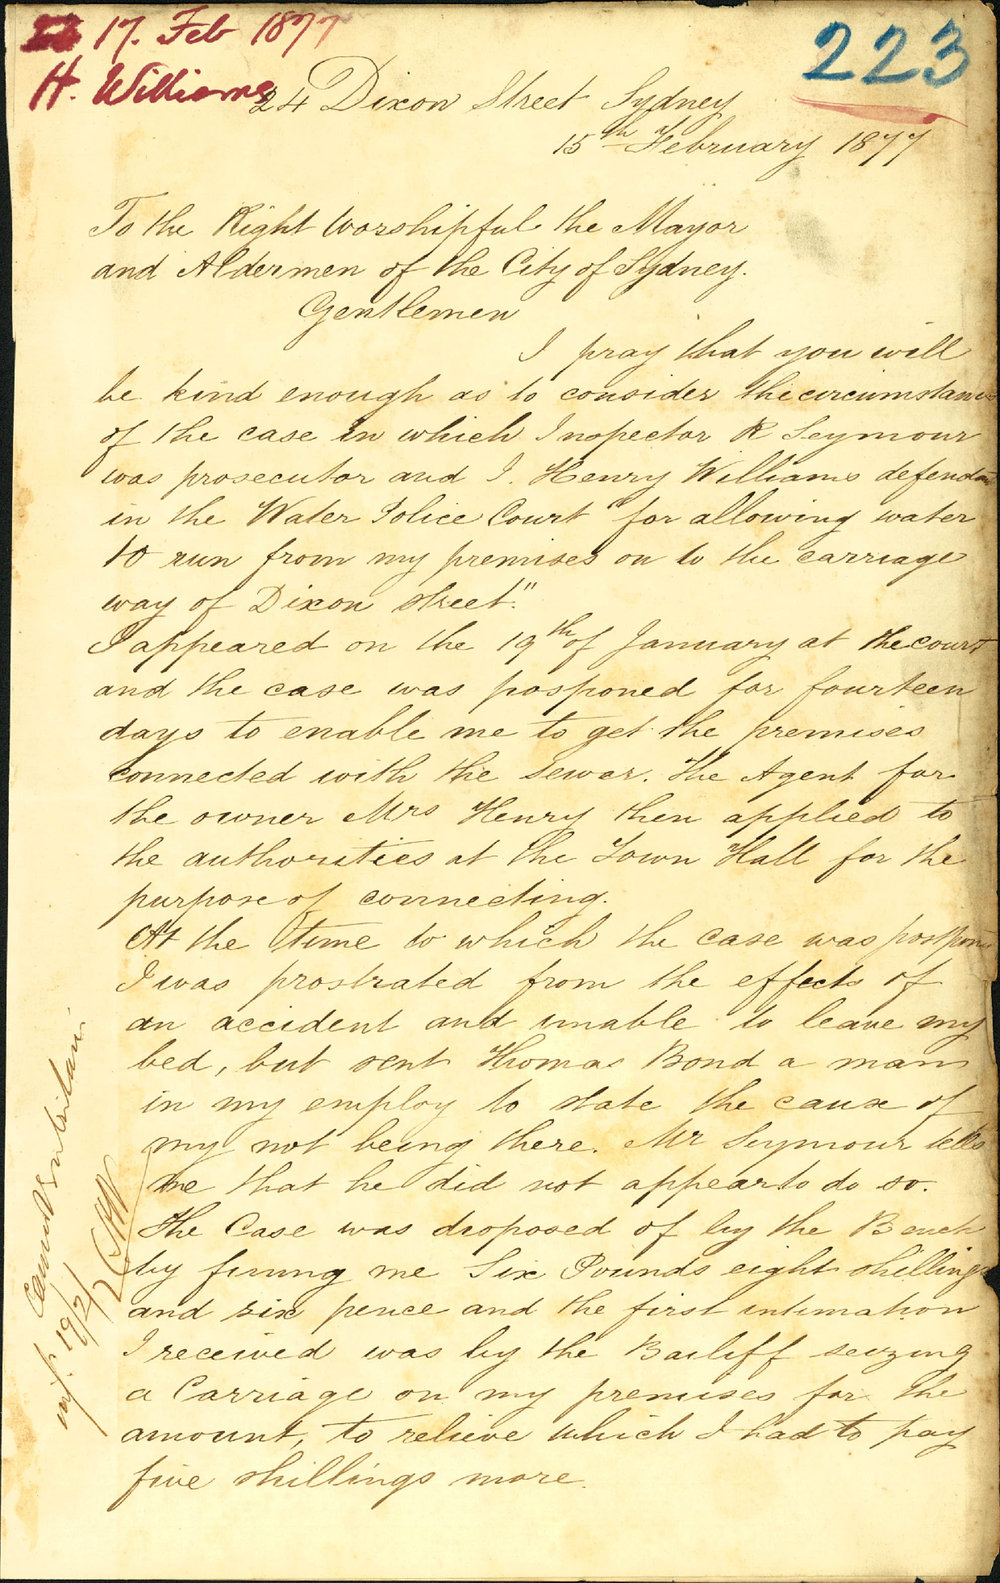 17. Feb 1877
H. Williams
223
24 Dixon Street Sydney
15th February 1877
To the Right Worshipful the Mayor
and Aldermen of the City of Sydney.
Gentlemen
I pray that you will
be kind enough as to consider the circumstances
of the case in which Inspector R Seymour
was prosecutor and I. Henry Williams defendant
in the Water Police Court "for allowing water
to run from my premises on to the carriage
way of Dixon street."
I appeared on the 19th of January at the court
and the case was posponed for fourteen
days to enable me to get the premises
connected with the sewer. The Agent for
the owner Mrs Henry then applied to
the authorities at the Town Hall for the
purpose of connecting.
At the time to which the case was postponed
I was prostrated from the effects of
an accident and unable to leave my
bed, but sent Thomas Bond a man
in my employ to state the cause of
my not being there. Mr Seymour tells
me that he did not appear to do so.
The Case was disposed of by the Bench
by fining me Six Pounds eight shillings
and six pence and the first intimation
I received was by the Bailiff seizing
a Carriage on my premises for the
amount, to relieve which I had to pay
five shillings more.
Cannot
inf. 19/2/